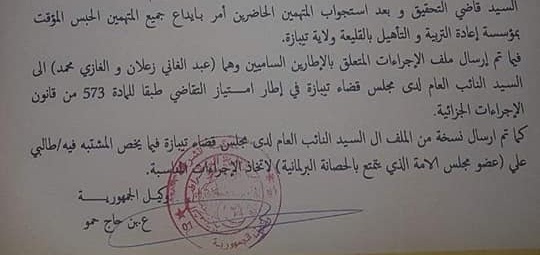 السيد قاضي التحقيق و بعد استجواب المتهمين الحاضرين أمر بايداع جميع المتهمين الحبس المؤقت
بمؤسسة إعادة التربية و التأهيل بالقليعة ولاية تيبازة.
فيما تم إرسال ملف الإجراءات المتعلق بالإطارين الساميين وهما (عبد الغاني زعلان و الغازي محمد) الى
السيد النائب العام لدى مجلس قضاء تيبازة في إطار امتياز التقاضي طبقا للمادة 573 من قانون
الإجراءات الجزائية.
كما تم ارسال نسخة من الملف ال السيد النائب العام لدى مجلس قضاء تيبازة فيما يخص المشتبه فيه/طالبي
علي (عضو مجلس الامة الذي يتمتع بالحصانة البرلمانية) لاتخاذ الإجراءات المناسبة.
وكيل الجمهورية
ع.بن حاج حمو